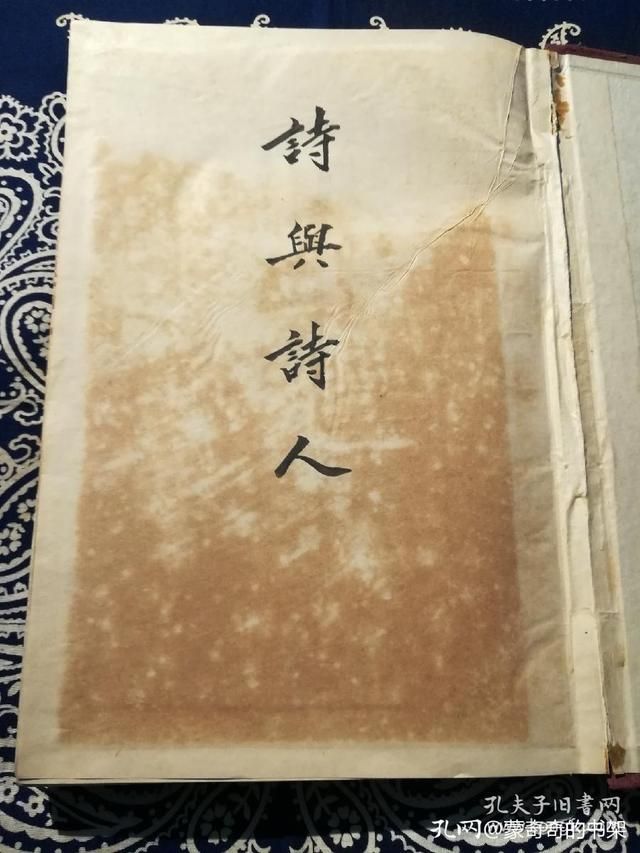 詩與詩人
孔夫子旧書网
孔网@蒙奇奇的书架